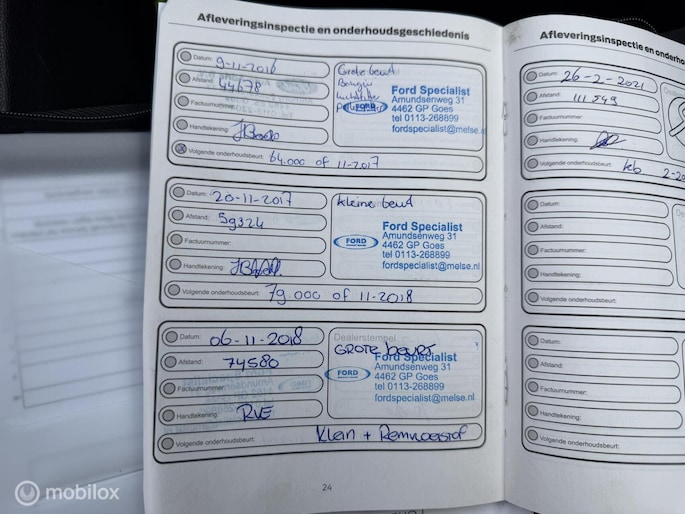 Afleveringsinspectie en onderhoudsgeschiedenis
Datum: 9-11-2016
Afstand: 44678
Factuurnummer:
Handtekening:
Volgende onderhoudsbeurt: 64.000 of 11-2017
Grote beurt
Ford Specialist
Amundsenweg 31
FORD 4462 GP Goes
tel 0113-268899
fordspecialist@melse.nl
Datum: 20-11-2017
Afstand: 59324
Factuurnummer:
Handtekening:
Volgende onderhoudsbeurt: 79.000 of 11-2018
Kleine beurt
Ford Specialist
Amundsenweg 31
FORD 4462 GP Goes
tel 0113-268899
fordspecialist@melse.nl
Datum: 06-11-2018
Afstand: 74580
Factuurnummer:
Handtekening: RVE
Volgende onderhoudsbeurt: Klein + Remvloeistof
Dealerstempel
GROTE beurt
Ford Specialist
Amundsenweg 31
FORD 4462 GP Goes
tel 0113-268899
fordspecialist@melse.nl
24
Afleveringsinspectie en onderho
Datum: 26-2-2021
Afstand: 111549
Factuurnummer:
Handtekening:
Volgende onderhoudsbeurt: feb 2-20
Datum:
Afstand:
Factuurnummer:
Handtekening:
Volgende onderhoudsbeurt:
Datum:
Afstand:
Factuurnummer:
Handtekening:
Volgende onderhoudsbeurt:
mobilox